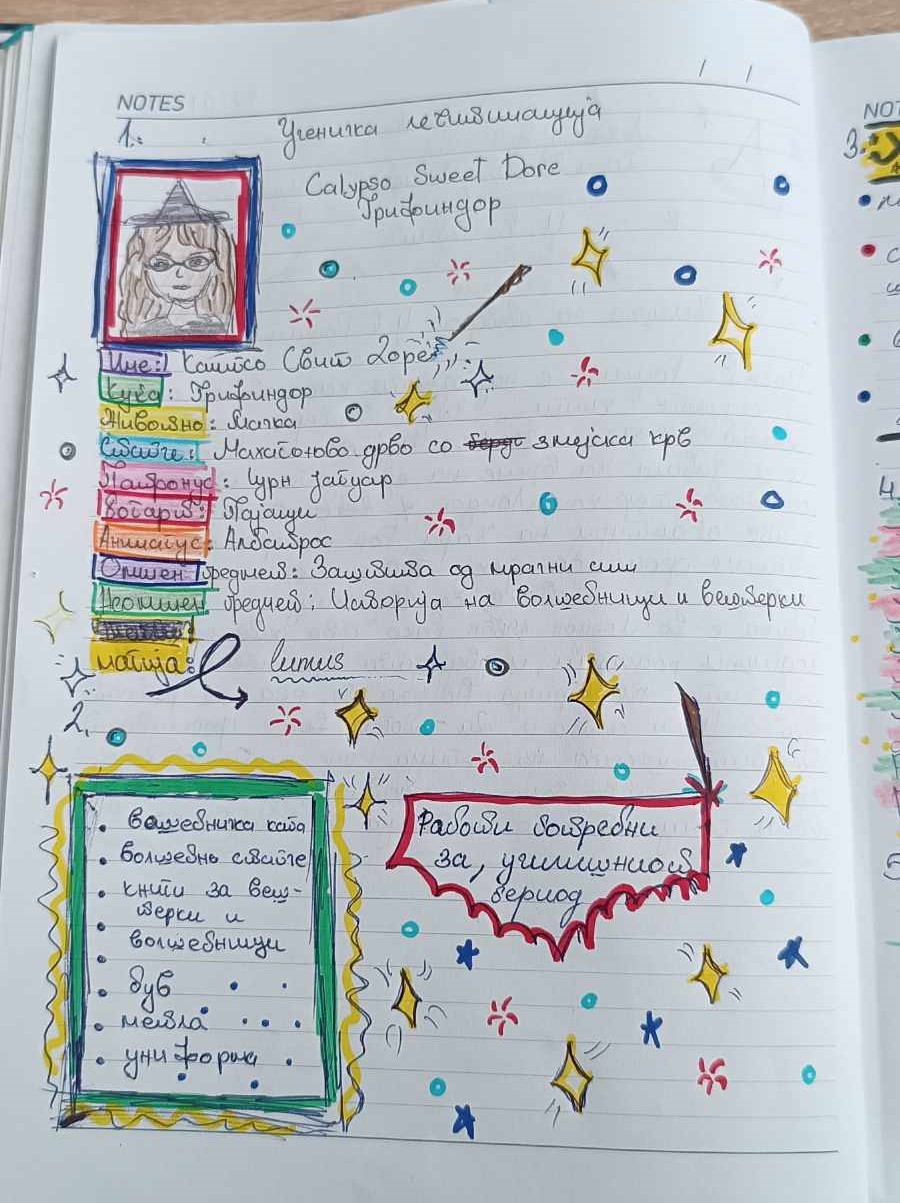 NOTES
1.
Ученичка легитимација
Calypso Sweet Dore
Грифиндор
Име: Калипсо Свит Доре
Куќа: Грифиндор
Животно: Мачка
Стапче: Махагоново дрво со змејска крв
Патронус: Црн јагуар
Богарт: Пајаци
Анимагус: Албатрос
Омилен предмет: Заштита од мрачни сили
Неомилен предмет: Историја на волшебници и вештерки
магија: lumus
2.
волшебничка капа
волшебно стапче
книги за веш-
терки и
волшебници
був
метла
униформа
Работи потребни
за, училишниот
период
NOT
3.
4.
5